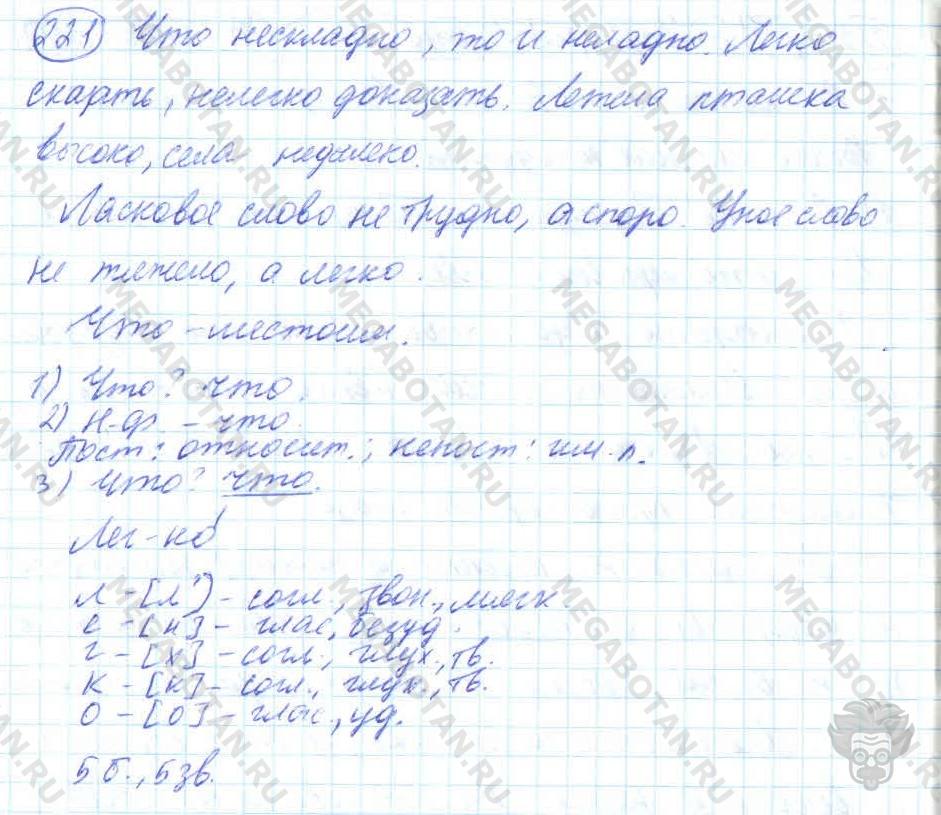 221 Что нескладно, то и неладно. Легко
сказать, нелегко доказать. Летела пташка
высоко, села недалеко.
Ласковое слово не трудно, а споро. Умное слово
не тяжело, а легко.
Что – местоим.
1) Что? что.
2) Н.ф. – что.
Пост: относит.; непост: им. п.
3) Что? что.
Лег-ко́
л – [л'] – согл., звон., мягк.
е – [и] – глас., безуд.
г – [х] – согл., глух., тв.
к – [к] – согл., глух., тв.
о – [о] – глас., уд.
5 б., 5 зв.
MEGABOTAN.RU